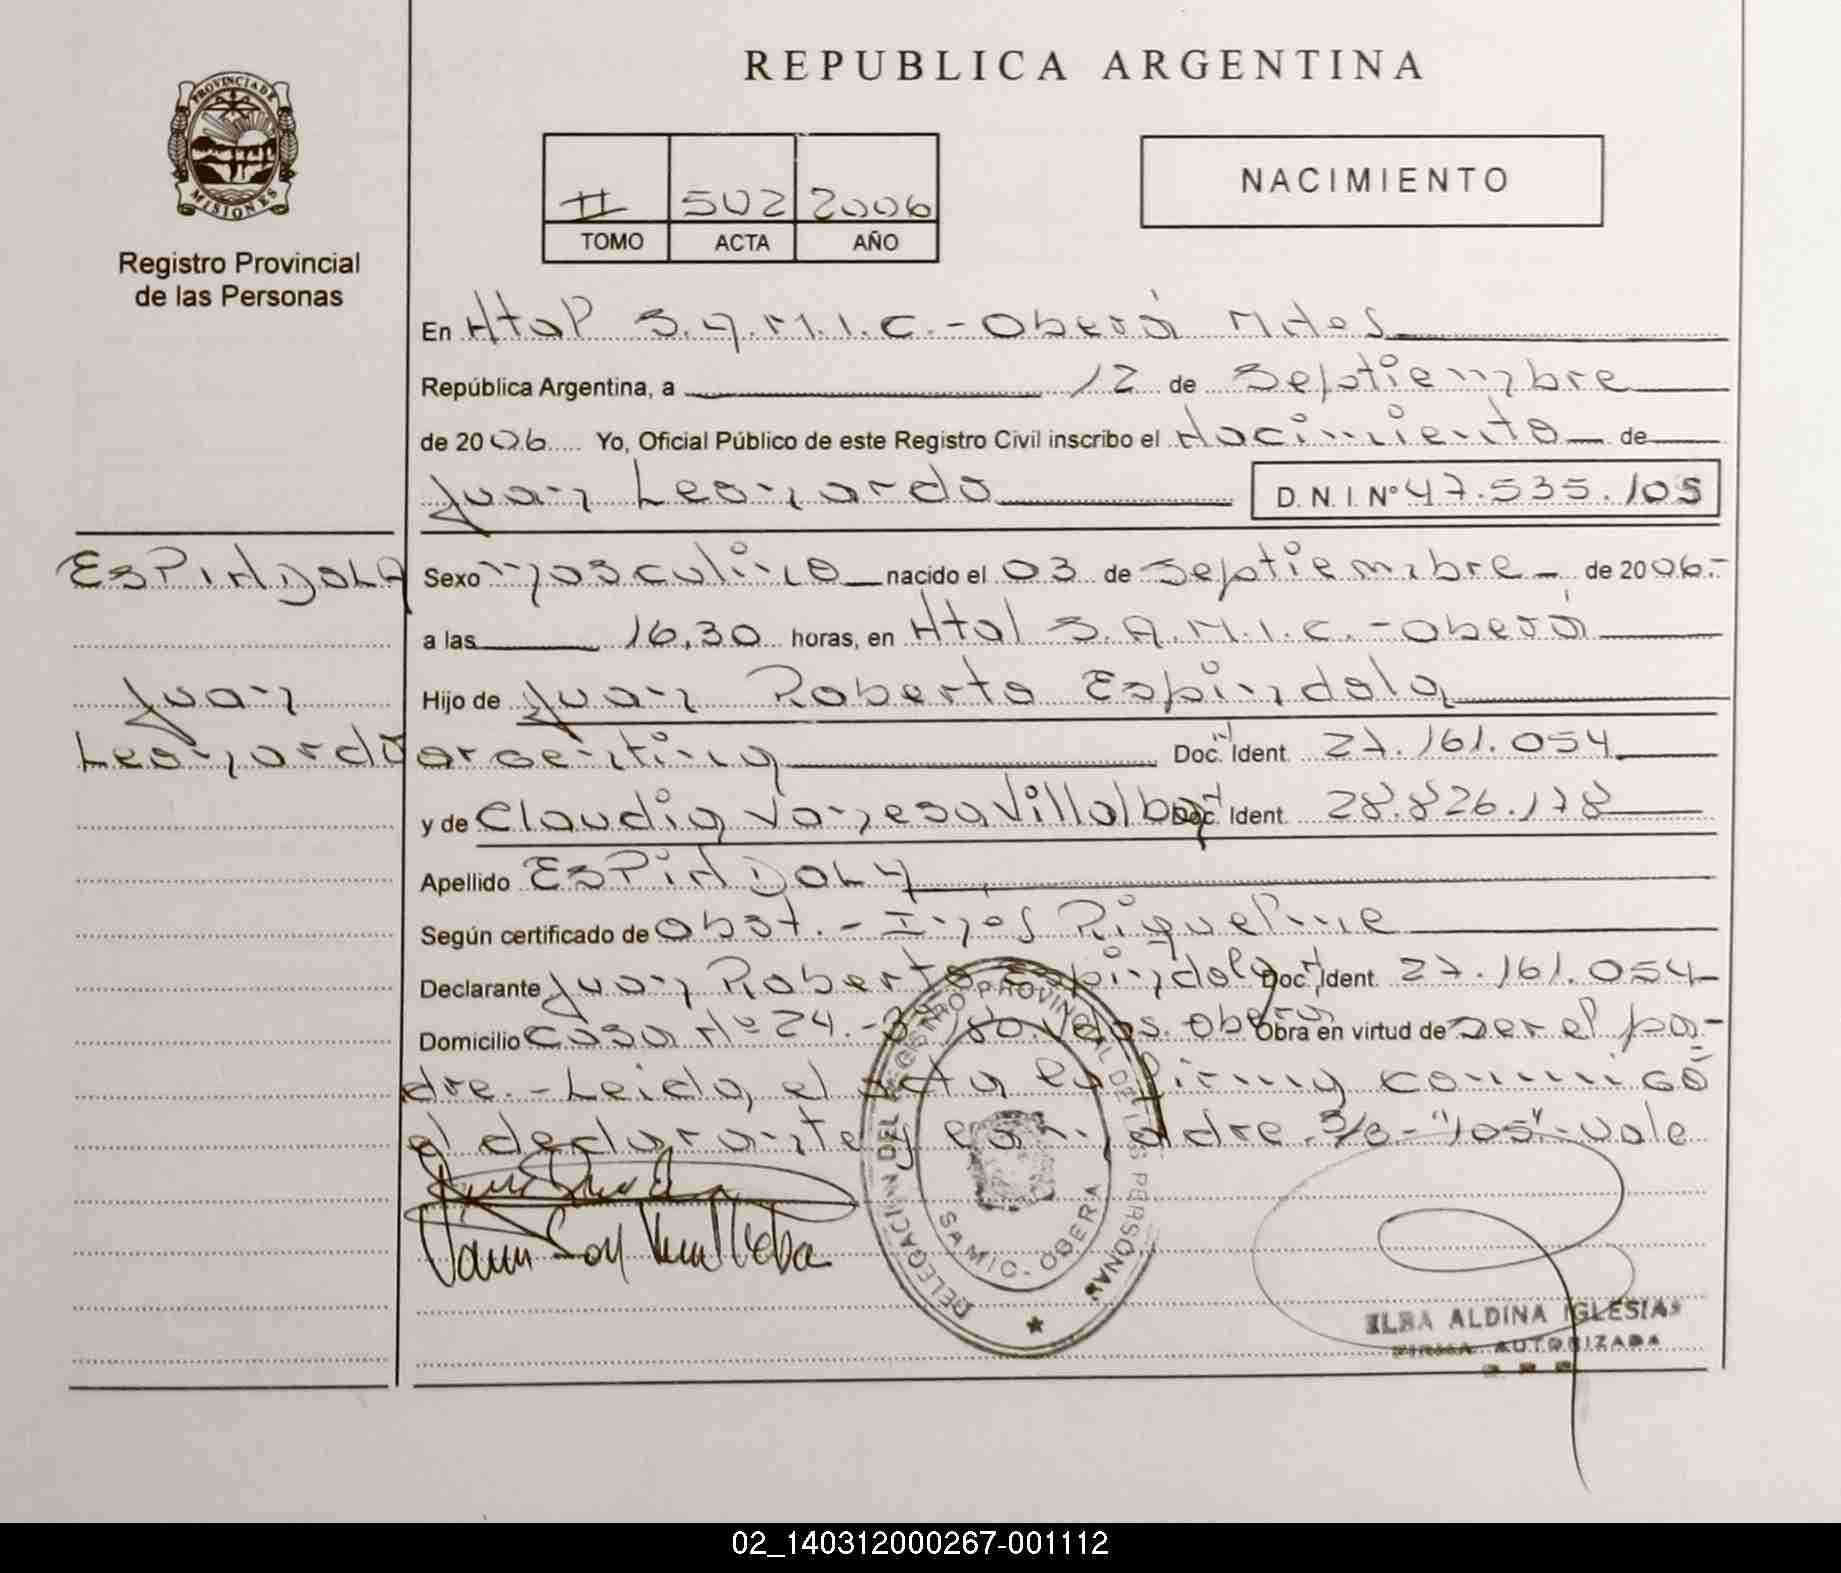 REPUBLICA ARGENTINA
PROVINCIA DE
MISIONES
Registro Provincial
de las Personas
II 502 2006
TOMO ACTA AÑO
NACIMIENTO
En Htal S.A.M.I.C.- Oberá Mnes
República Argentina, a 12 de Septiembre
de 2006 Yo, Oficial Público de este Registro Civil inscribo el Nacimiento de
Juan Leonardo D. N. I. Nº 47.535.105
ESPINDOLA
Juan
Leonardo
Sexo masculino nacido el 03 de Septiembre - de 2006.-
a las 16,30 horas, en Htal S.A.M.I.C.- Oberá
Hijo de Juan Roberto Espindola
argentina Doc. Ident. 27.161.054
y de Claudia Vanesa Villalba Doc. Ident. 28.826.178
Apellido ESPINDOLA
Según certificado de Obst.- Ines Riquelme
Declarante Juan Roberto Espindola Doc. Ident. 27.161.054
Domicilio Casa Nº 24.- Oberá Obra en virtud de ser el pa-
dre.- Leida el acta la firma conmigo
el declarante y la madre. S/B- "105"- vale
DELEGACION DEL REGISTRO PROVINCIAL DE LAS PERSONAS
SAMIC. OBERA
ELBA ALDINA IGLESIAS
FIRMA AUTORIZADA
02_140312000267-001112